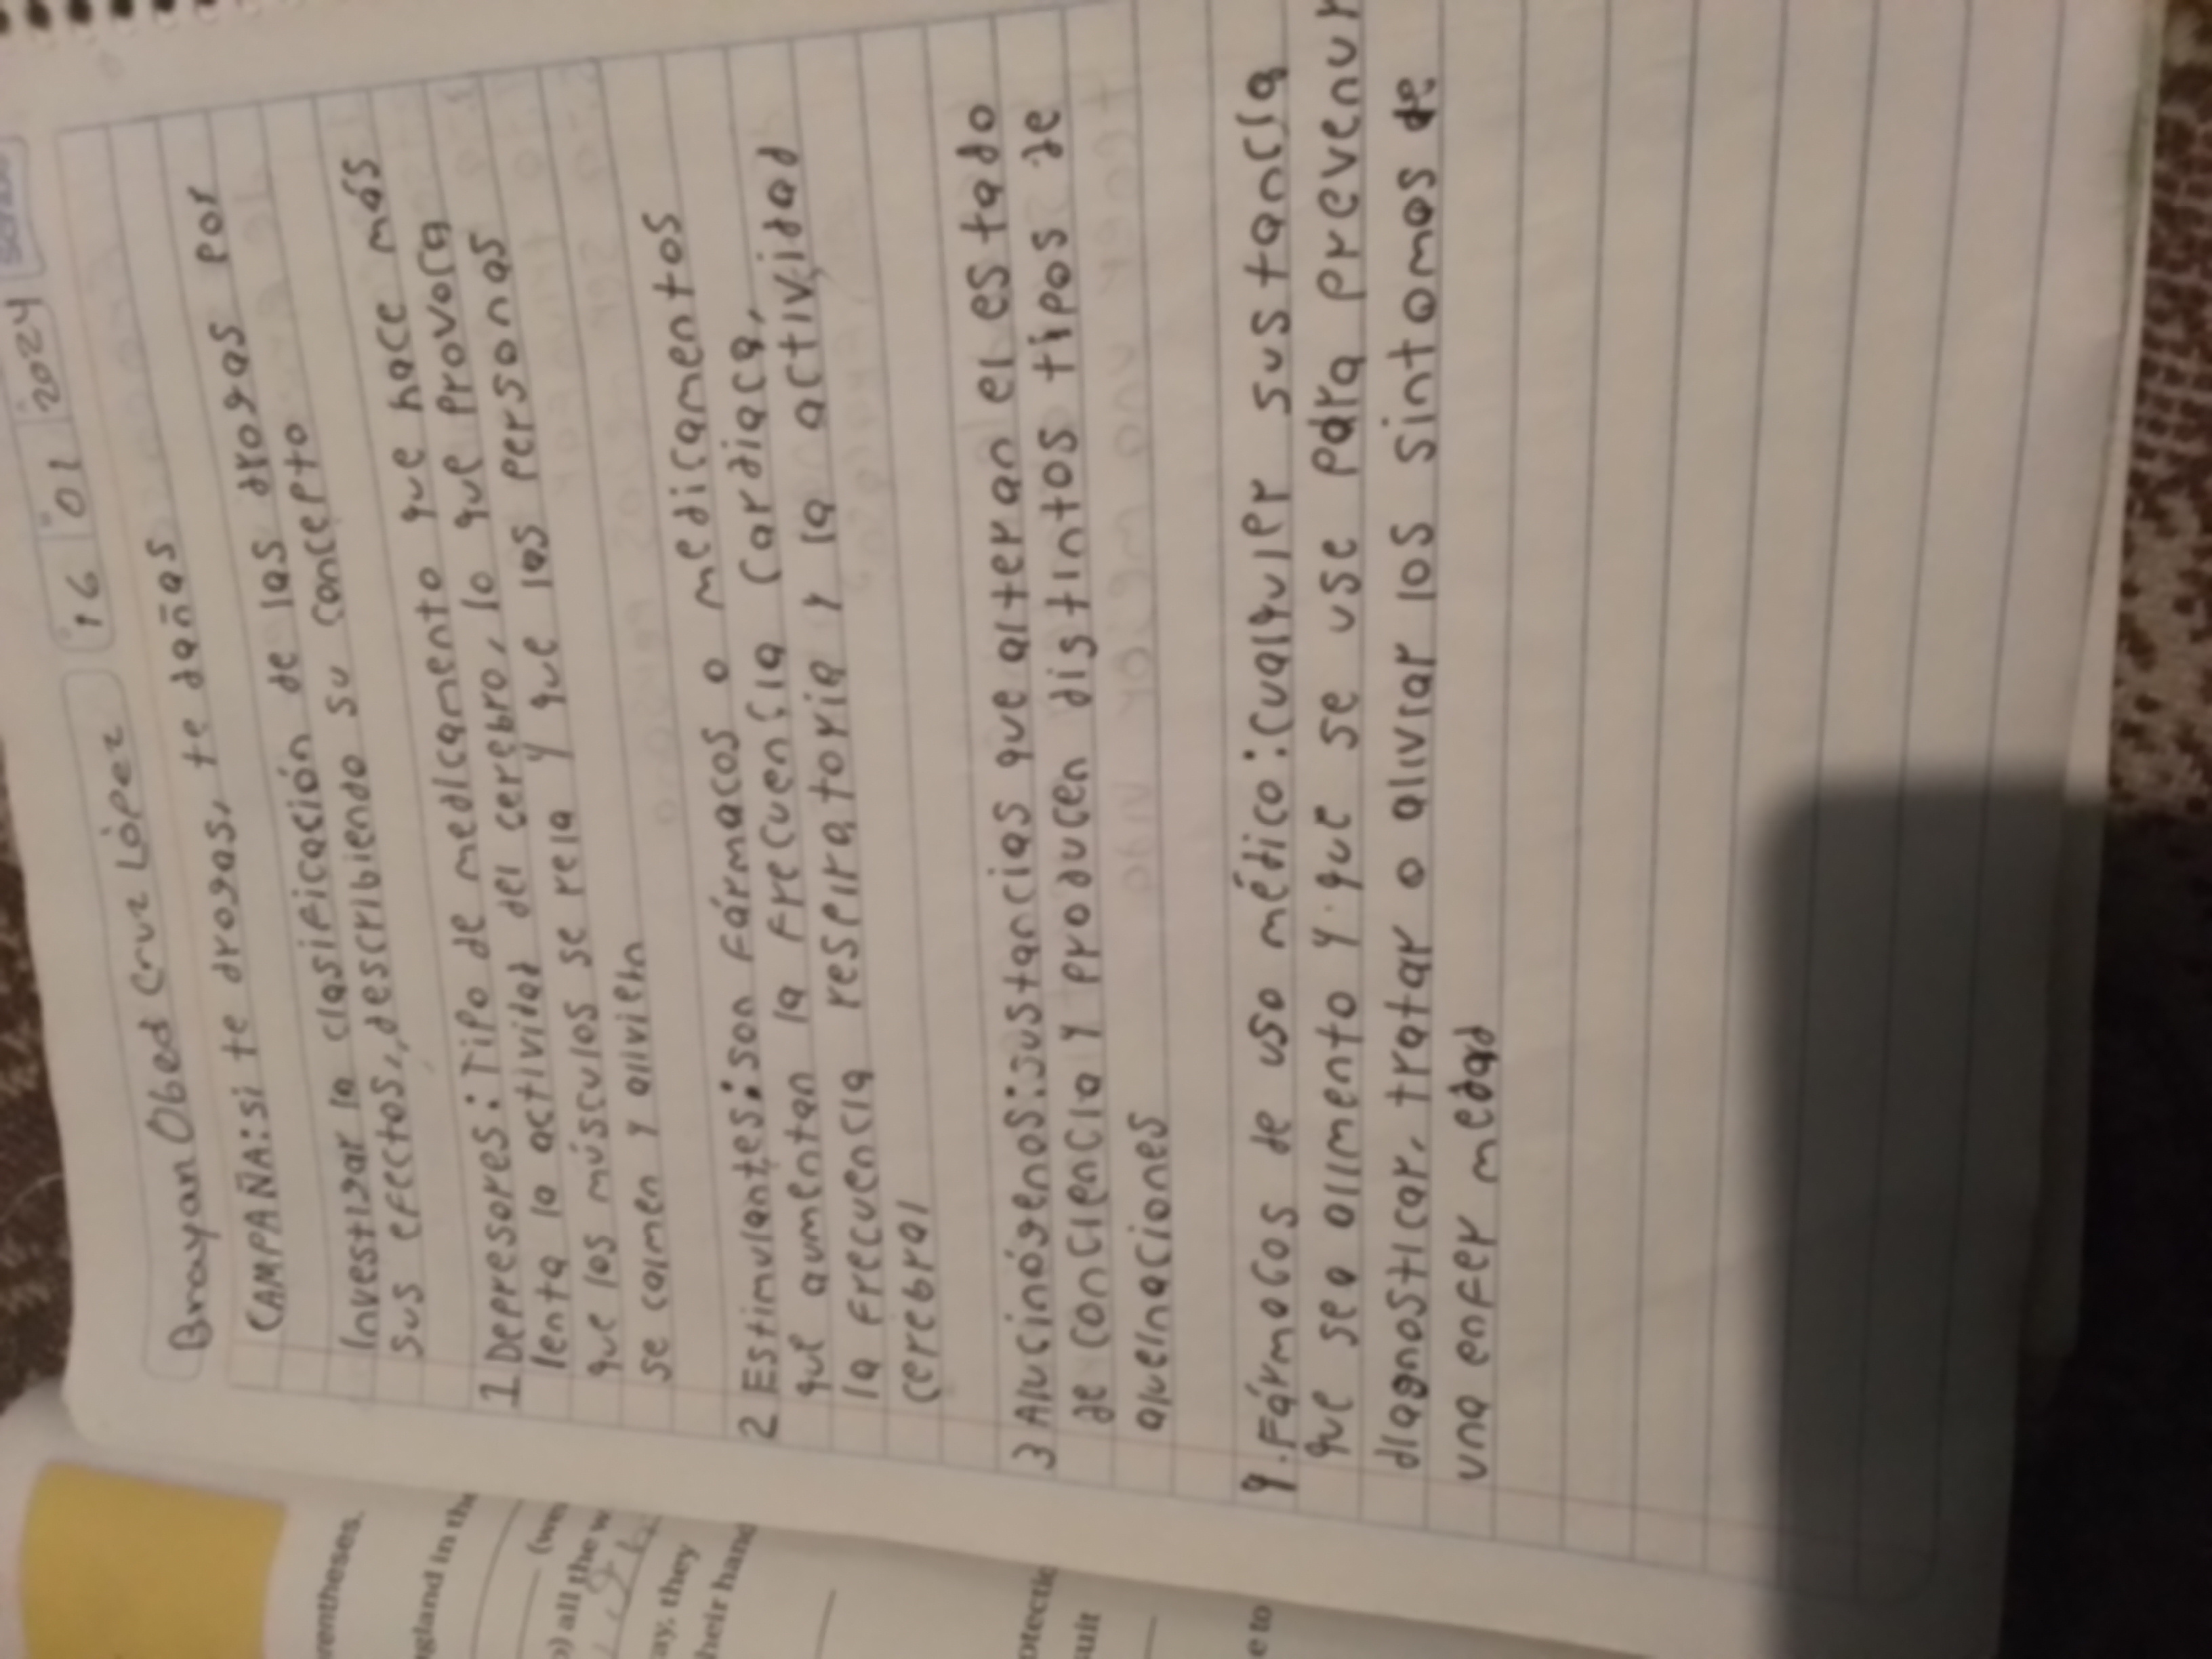 16 01 2024
Brayan Obed Cruz López
CAMPAÑA: si te drogas, te dañas
Investigar la clasificación de las drogas por
sus efectos, describiendo su concepto
1 Depresores: Tipo de medicamento que hace más
lenta la actividad del cerebro, lo que provoca
que los músculos se rela y que las personas
se calmen y alivien
2 Estimulantes: son Fármacos o medicamentos
que aumentan la Frecuencia Cardiaca,
la Frecuencia respiratoria y la actividad
cerebral
3 Alucinógenos: sustancias que alteran el estado
de conciencia y producen distintos tipos de
aluelnaciones
9. Fármacos de uso médico: cualquier sustancia
que sea alimento y que se use para prevenir
diagnosticar, tratar o aliviar los sintomas de
una enfer medad
rentheses.
ngland in the
(wea
) all the w
ay, they
heir hand
otectio
suit
e to